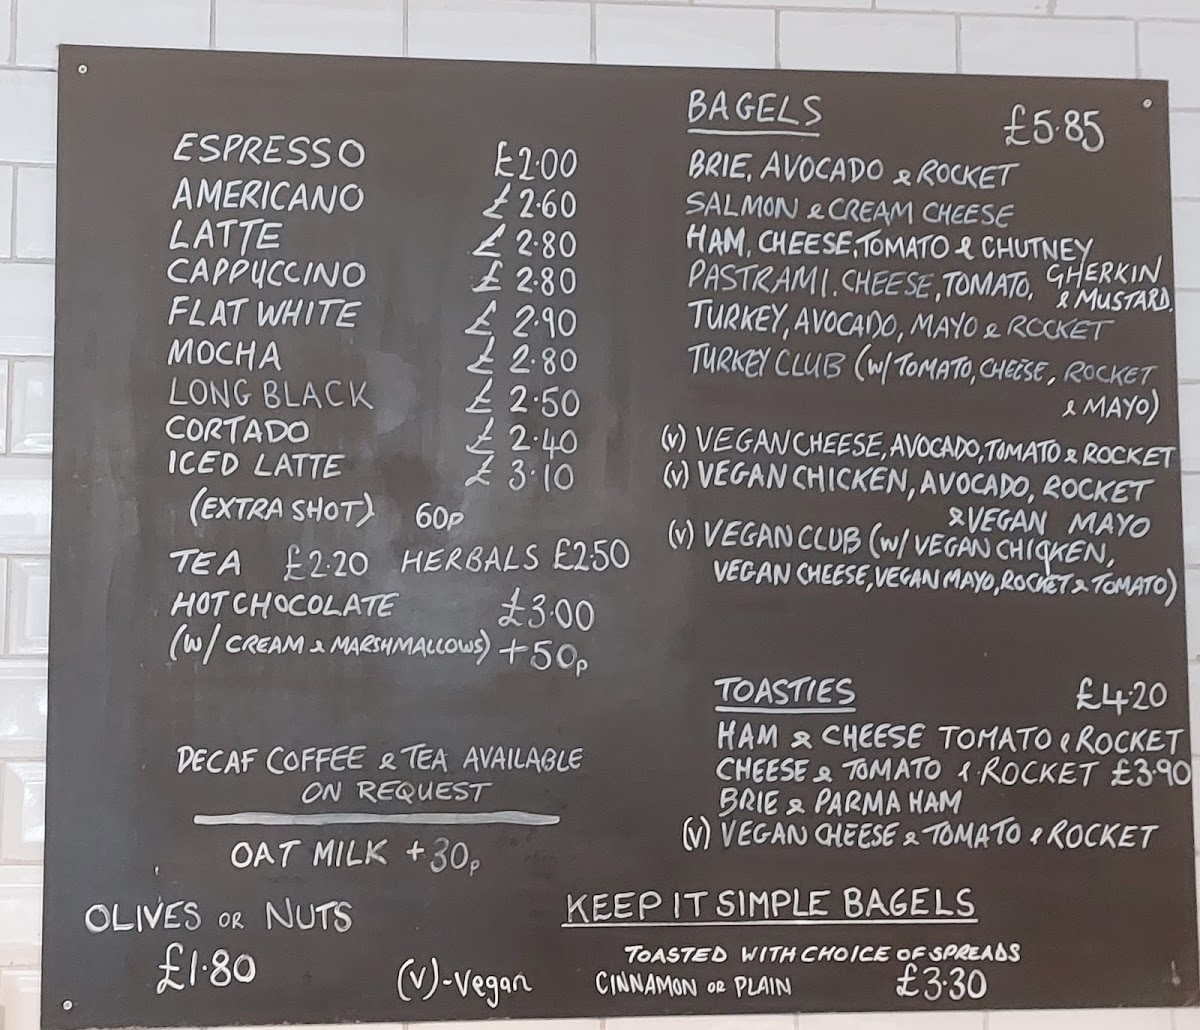 ESPRESSO £2.00
AMERICANO £2.60
LATTE £2.80
CAPPUCCINO £2.80
FLAT WHITE £2.90
MOCHA £2.80
LONG BLACK £2.50
CORTADO £2.40
ICED LATTE £3.10
(EXTRA SHOT) 60p
TEA £2.20 HERBALS £2.50
HOT CHOCOLATE £3.00
(W/ CREAM & MARSHMALLOWS) +50p
DECAF COFFEE & TEA AVAILABLE
ON REQUEST
OAT MILK +30p
OLIVES OR NUTS
£1.80
(V)-Vegan
BAGELS £5.85
BRIE, AVOCADO & ROCKET
SALMON & CREAM CHEESE
HAM, CHEESE, TOMATO & CHUTNEY
PASTRAMI, CHEESE, TOMATO, GHERKIN
& MUSTARD.
TURKEY, AVOCADO, MAYO & ROCKET
TURKEY CLUB (W/ TOMATO, CHEESE, ROCKET
& MAYO)
(V) VEGAN CHEESE, AVOCADO, TOMATO & ROCKET
(V) VEGAN CHICKEN, AVOCADO, ROCKET
& VEGAN MAYO
(V) VEGAN CLUB (W/ VEGAN CHICKEN,
VEGAN CHEESE, VEGAN MAYO, ROCKET & TOMATO)
TOASTIES £4.20
HAM & CHEESE TOMATO & ROCKET
CHEESE & TOMATO & ROCKET £3.90
BRIE & PARMA HAM
(V) VEGAN CHEESE & TOMATO & ROCKET
KEEP IT SIMPLE BAGELS
TOASTED WITH CHOICE OF SPREADS
CINNAMON OR PLAIN £3.30